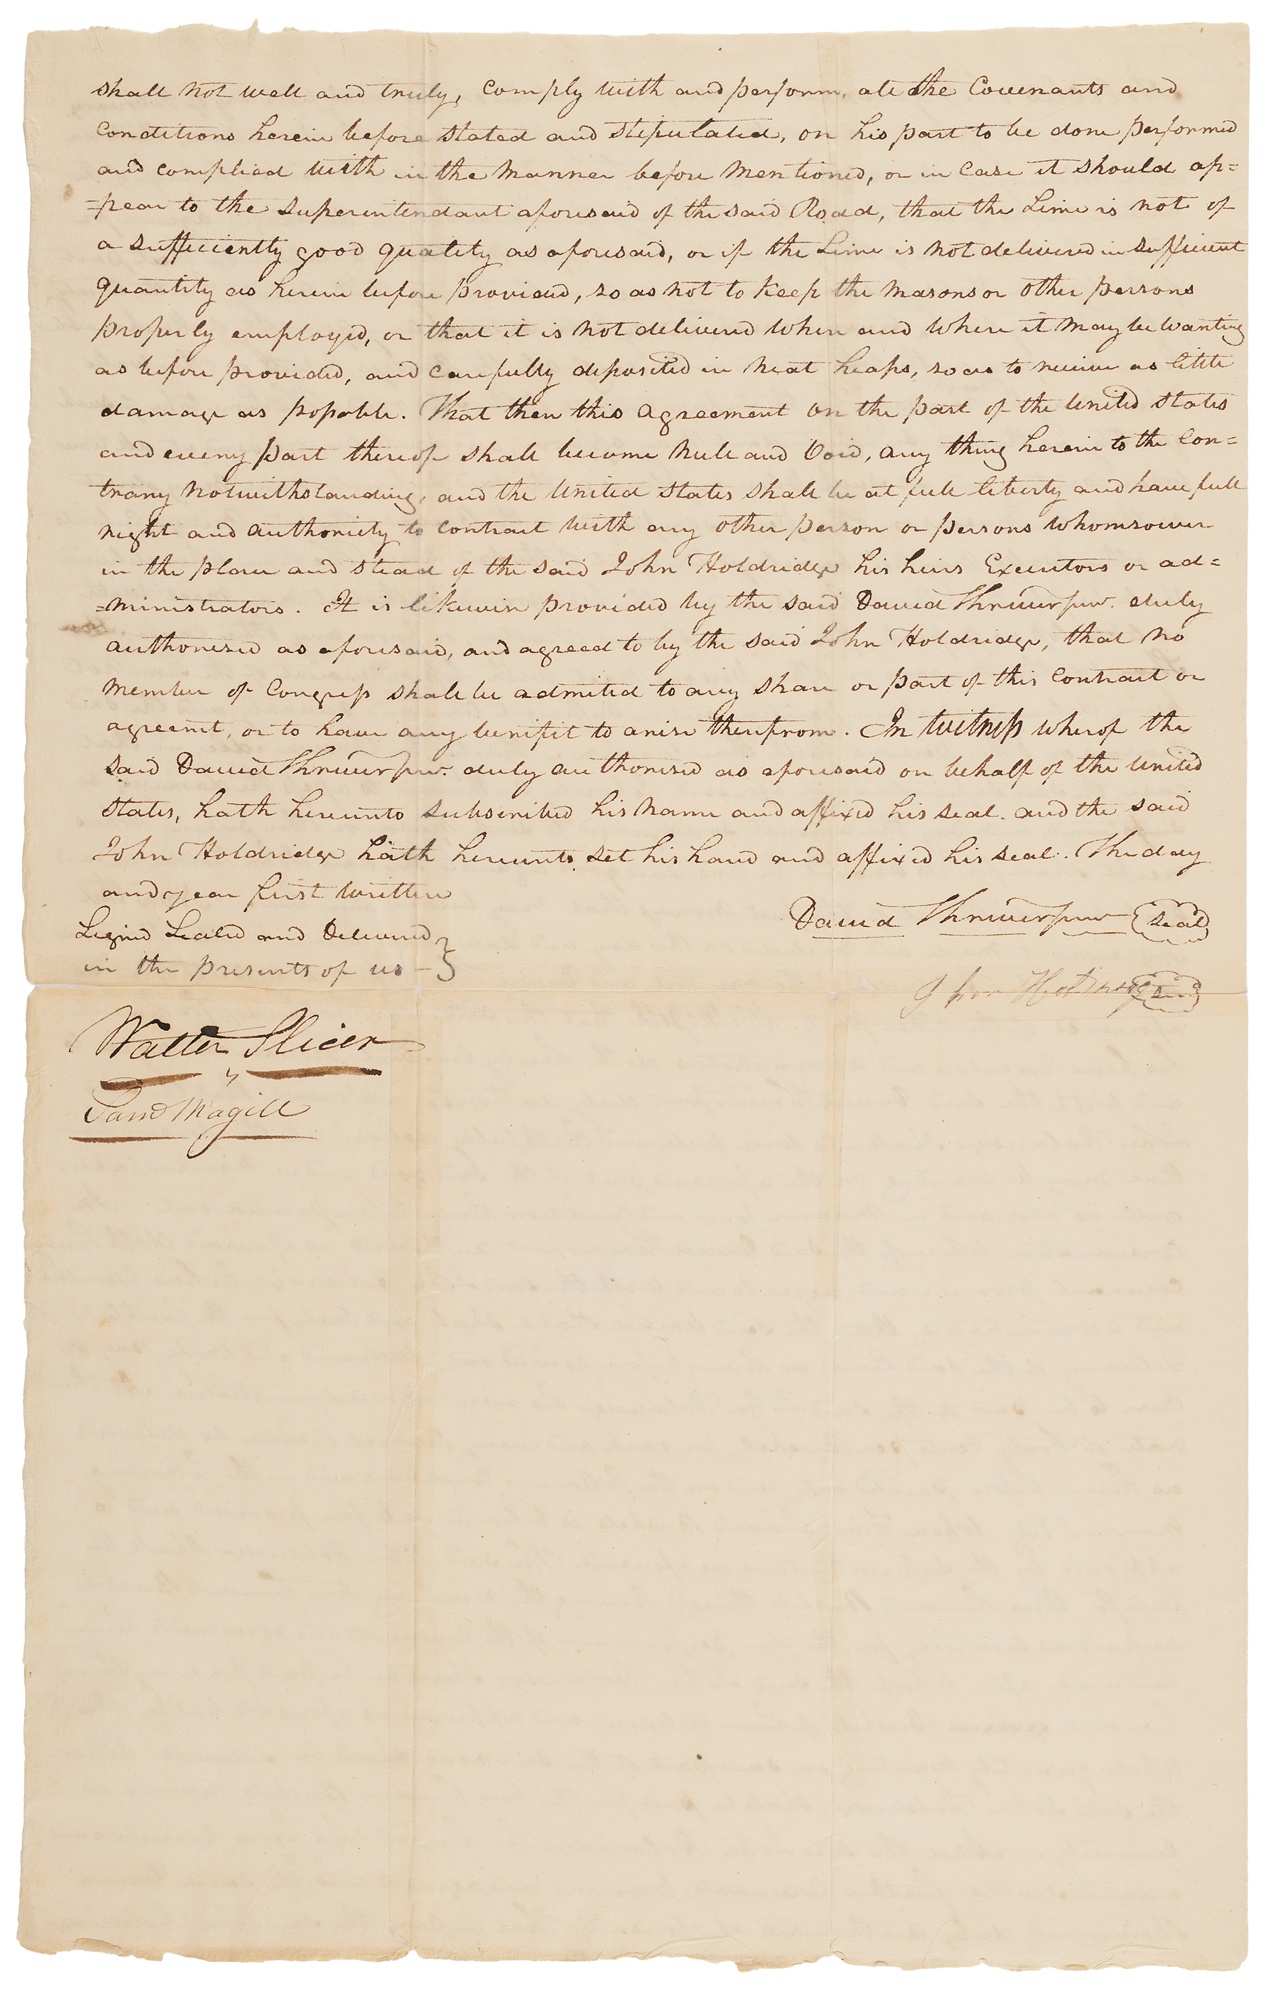 shall not well and truly, comply with and perform, all the Covenants and
Conditions herein before stated and stipulated, on his part to be done performed
and complied with in the manner before mentioned, or in case it should ap=
=pear to the Superintendant aforesaid of the said Road, that the Lime is not of
a sufficiently good quality as aforesaid, or if the Lime is not delivered in sufficient
quantity as herein before provided, so as not to keep the masons or other persons
properly employed, or that it is not delivered when and where it may be wanting
as before provided, and carefully deposited in neat heaps, so as to receive as little
damage as possible. That then this agreement on the part of the United States
and every part thereof shall become null and Void, any thing herein to the Con=
trary notwithstanding, and the United States shall be at full liberty and have full
right and authority to contract with any other person or persons whomsoever
in the place and stead of the said John Holdridge his heirs Executors or ad=
=ministrators. It is likewise provided by the said David Shriver junr. duly
authorised as aforesaid, and agreed to by the said John Holdridge, that no
member of Congress shall be admited to any share or part of this Contract or
agreemt, or to have any benifit to arise therefrom. In Witness wherof the
said David Shriver junr. duly authorised as aforesaid on behalf of the United
States, hath hereunto subscribed his name and affixed his seal. and the said
John Holdridge hath hereunto set his hand and affixed his seal. The day
and year first written
Signd Seald and Delivered
in the presents of us
David Shriver junr seal
John Holdridge seal
Walter Slicer
Saml Magill